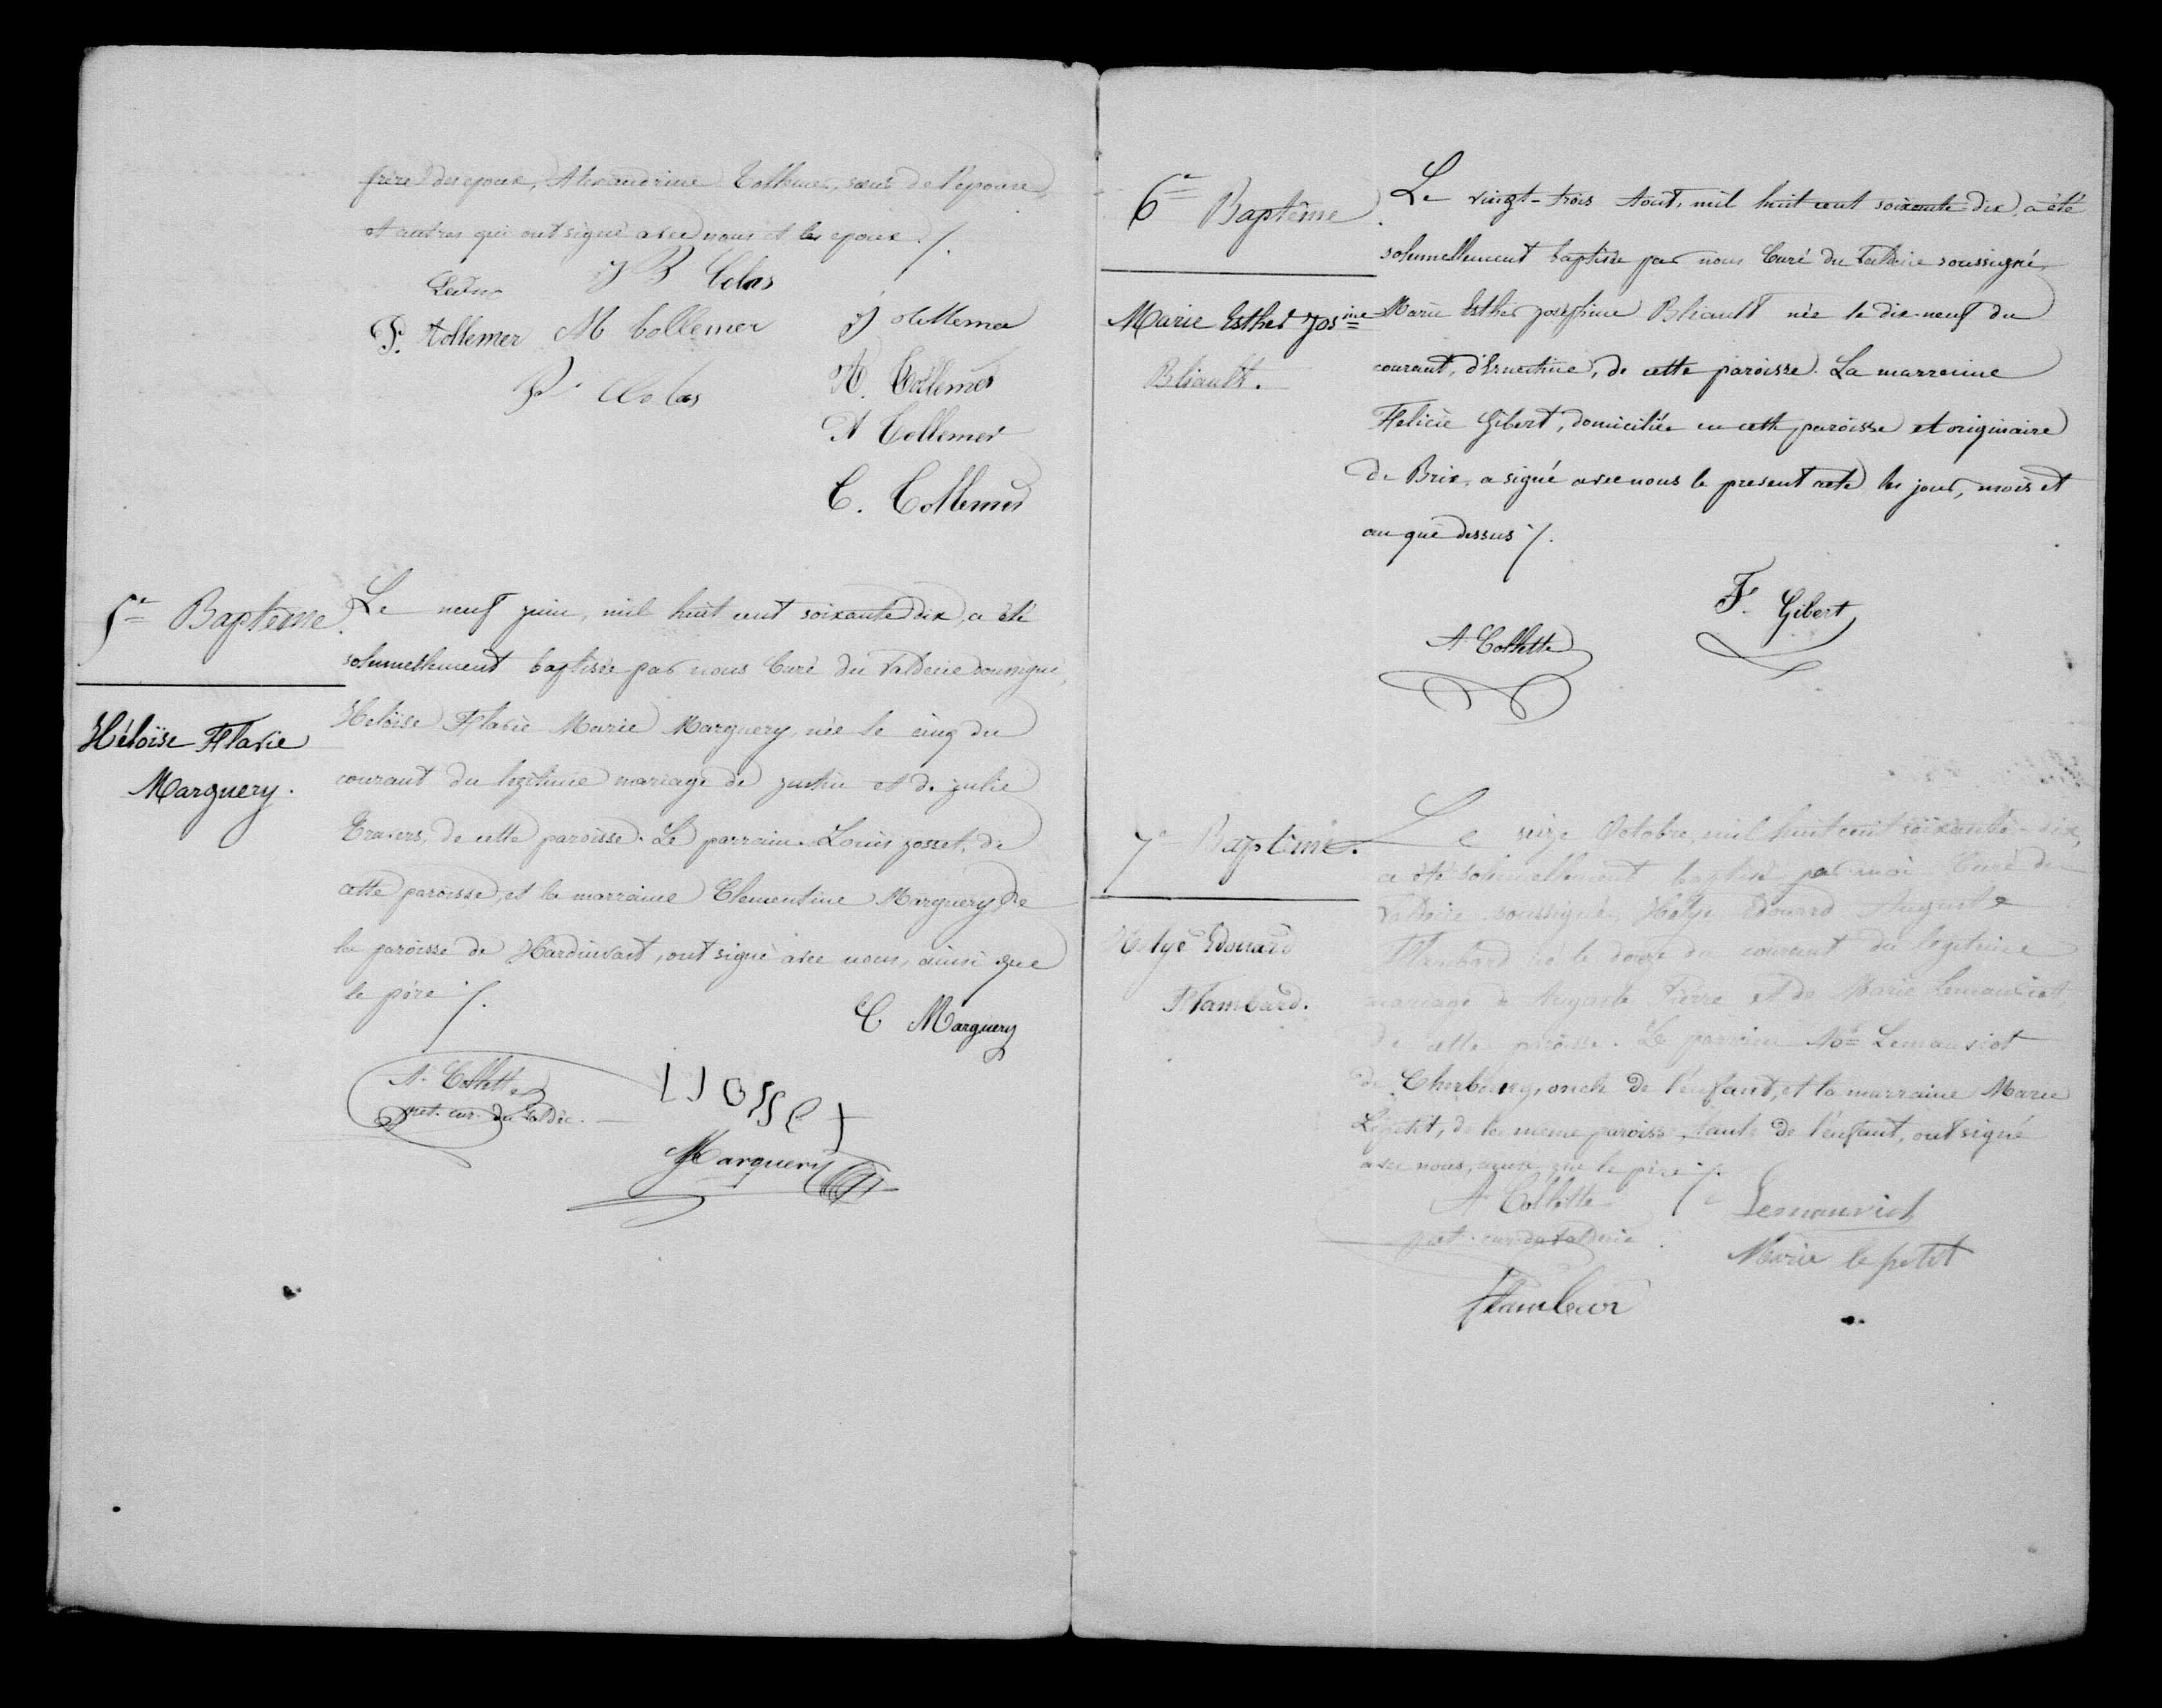 frère des epoux, Alexandrine Collemer, sœur de l'épouse,
et autres qui ont signé avec nous et les epoux ./.
J B Colas
P. Collemer M Collemer
J Collemer
P Colas
A. Collemer
A Collemer
C. Collemer
5e Baptême.
Héloïse Flavie
Marguery.
Le neuf juin, mil huit cent soixante dix, a été
solennellement baptisée par nous Curé du Valdecie soussigné,
Heloïse Flavie Marie Marguery, née le cinq du
courant du légitime mariage de Justin et de Julie
Travers, de cette paroisse. Le parrain Louis Josset, de
cette paroisse, et la marraine Clementine Marguery, de
la paroisse de Hardinvast, ont signé avec nous, ainsi que
le père ./.
C Marguery
A. Collette
pret. cur. du Valdéc.
L JOSSET
Marguery
6e Baptême.
Marie Esther Josine
Bliault.
Le vingt-trois Août, mil huit cent soixante dix, a été
solennellement baptisée par nous Curé du Valdecie soussigné,
Marie Esther Joséphine Bliault née le dix-neuf du
courant, d'Ernestine, de cette paroisse. La marraine
Felicie Gibert, domiciliée en cette paroisse et originaire
de Brix, a signé avec nous le present acte les jour, mois et
an que dessus ./.
F. Gibert
A. Collette
7e Baptême.
Helye Edouard
Flambard.
Le seize Octobre, mil huit cent soixante-dix,
a été solennellement baptisé par moi Curé du
Valdecie soussigné, Helye Edouard Auguste
Flambard né le douze du courant du légitime
mariage de Auguste Pierre et de Marie Lemauviot,
de cette paroisse. Le parrain Lemauviot
de Cherbourg, oncle de l'enfant, et la marraine Marie
Lepetit, de la même paroisse, tante de l'enfant, ont signé
avec nous, ainsi que le père ./.
A Collette
pret. cur. du Valdecie.
Lemauviot
Marie le petit
Flambard